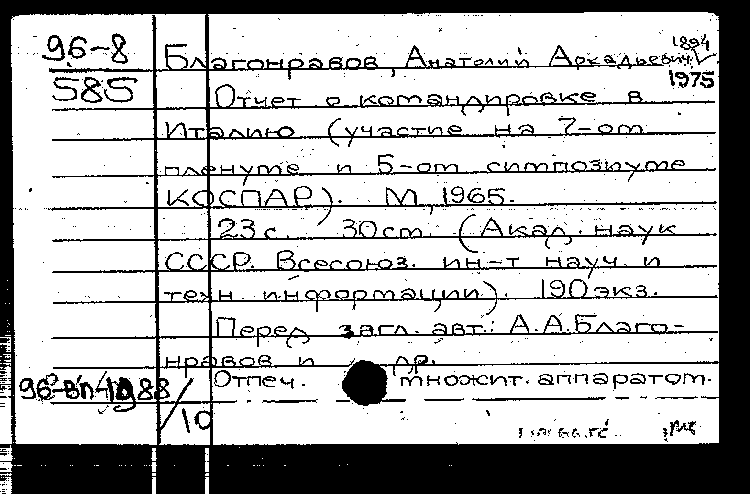 96-8
585
Благонравов, Анатолий Аркадьевич. 1894
1975
Отчет о командировке в
Италию (участие на 7-ом
пленуме и 5-ом симпозиуме
КОСПАР). М, 1965.
23 с. 30 см. (Акад. наук
СССР. Всесоюз. ин-т науч. и
техн. информации). 190 экз.
Перед загл. авт.: А.А.Благо-
нравов и др.
Отпеч. множит. аппаратом.
/10